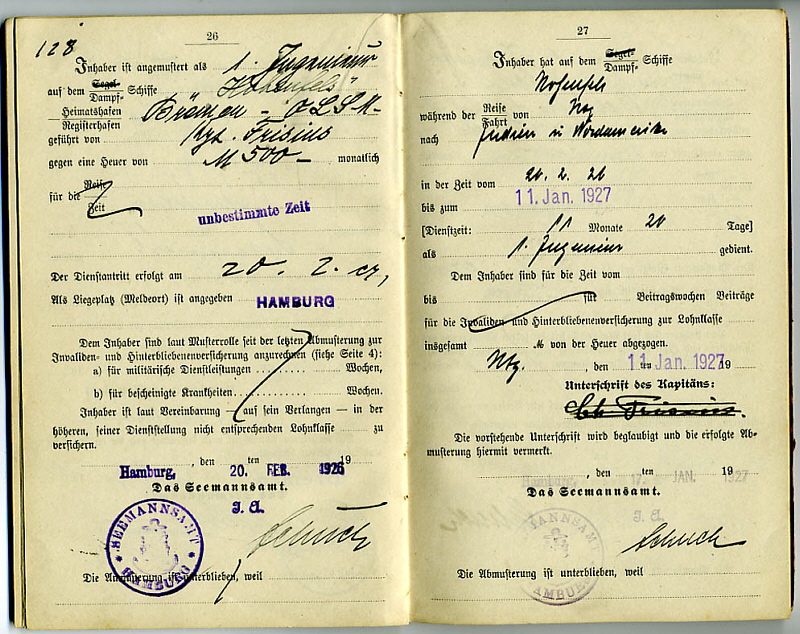 128
26
Inhaber ist angemustert als 1. Ingenieur
auf dem Segel- Dampf- Schiffe "Hohenfels"
Heimatshafen Registerhafen Bremen -
geführt von Kpt. Frisius
gegen eine Heuer von M 500- monatlich
für die Reise Zeit
unbestimmte Zeit
Der Dienstantritt erfolgt am 20. 2. cr,
Als Liegeplatz (Meldeort) ist angegeben HAMBURG
Dem Inhaber sind laut Musterrolle seit der letzten Abmusterung zur
Invaliden- und Hinterbliebenenversicherung anzurechnen (siehe Seite 4):
a) für militärische Dienstleistungen .......... Wochen,
b) für bescheinigte Krankheiten .......... Wochen.
Inhaber ist laut Vereinbarung — auf sein Verlangen — in der
höheren, seiner Dienststellung nicht entsprechenden Lohnklasse zu
versichern.
, den ten 19
Hamburg, 20. FEB. 1926
Das Seemannsamt.
J. A.
Schuch
SEEMANNSAMT HAMBURG
Die Abmusterung ist unterblieben, weil
27
Inhaber hat auf dem Segel- Dampf- Schiffe
Hohenfels
während der Reise Fahrt von Hbg
nach Indien u Nordamerika
in der Zeit vom 20. 2. 26
bis zum 11. Jan. 1927
[Dienstzeit: Monate 20 Tage]
als 1. Ingenieur gedient.
Dem Inhaber sind für die Zeit vom
bis für Beitragswochen Beiträge
für die Invaliden und Hinterbliebenenversicherung zur Lohnklasse
insgesamt ℳ von der Heuer abgezogen.
Hbg. , den ten 11. Jan. 1927 19
Unterschrift des Kapitäns:
Die vorstehende Unterschrift wird beglaubigt und die erfolgte Ab-
musterung hiermit vermerkt.
, den ten 19
Hamburg, 17. JAN. 1927
Das Seemannsamt.
J. A.
Schuch
SEEMANNSAMT HAMBURG
Die Abmusterung ist unterblieben, weil